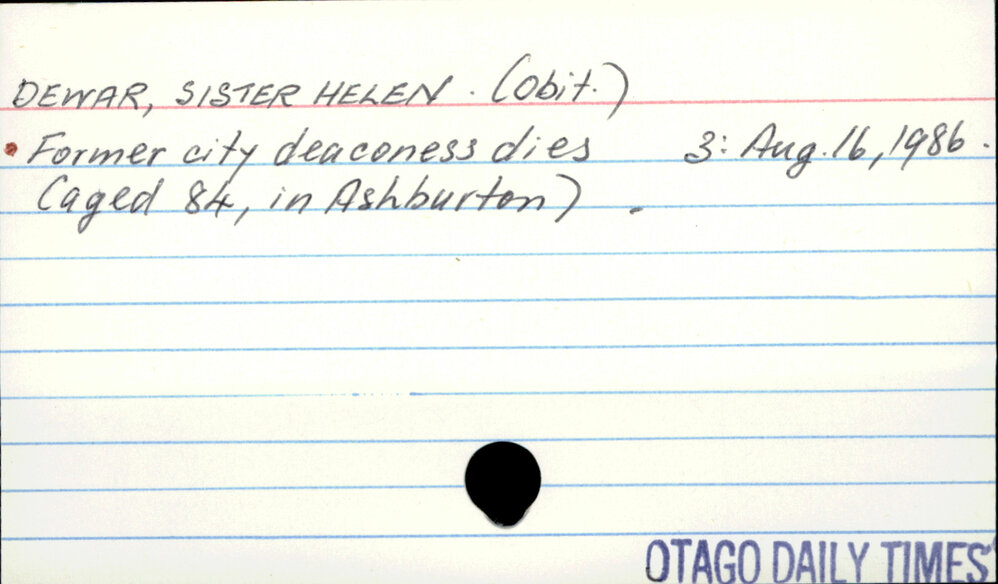 DEWAR, SISTER HELEN. (Obit.)
• Former city deaconess dies 3: Aug. 16, 1986.
(aged 84, in Ashburton).
OTAGO DAILY TIMES